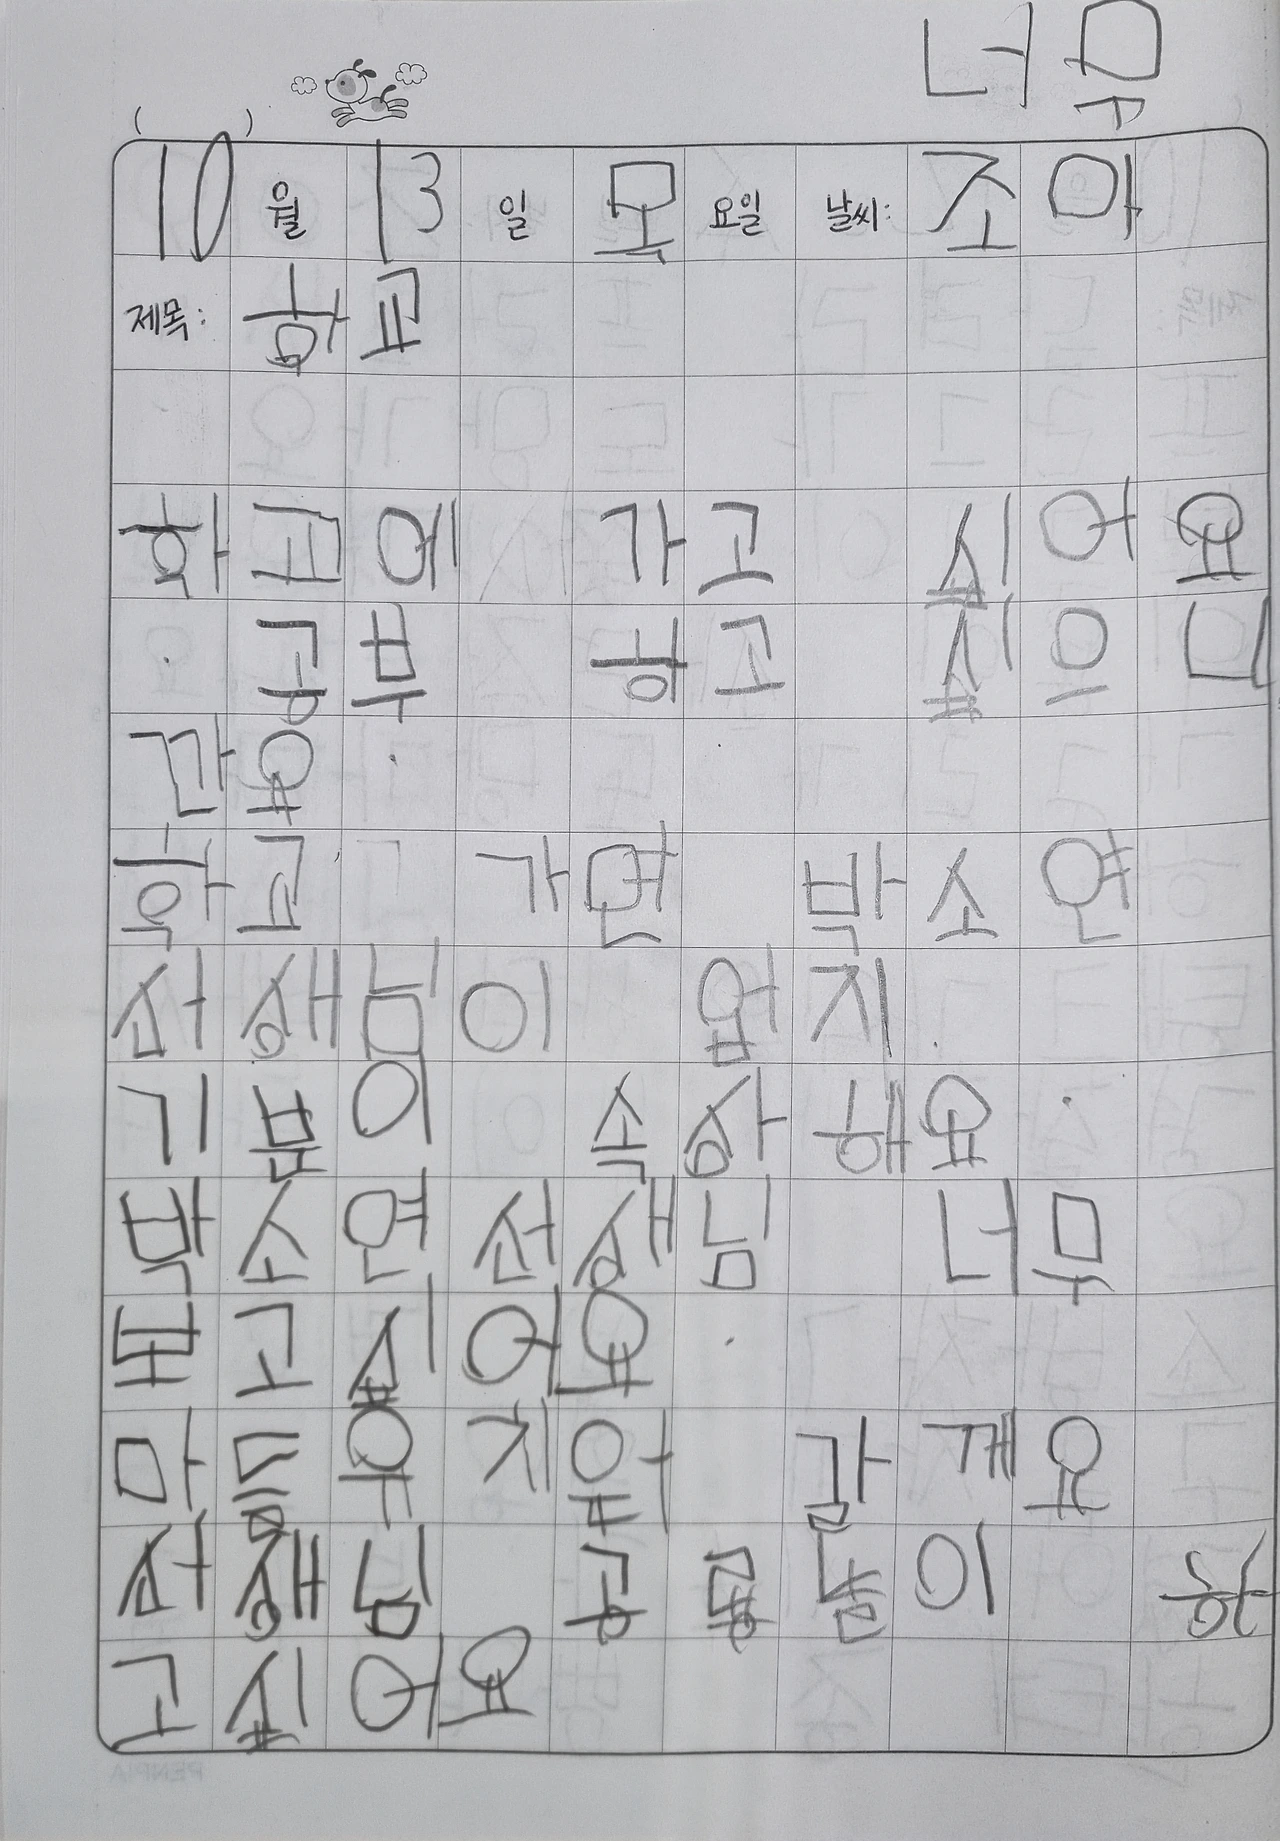 너무
10월 13일 목요일 날씨: 조아
제목: 학교
학교에 가고 싶어요
. 공부 하고 싶으니
간어.
학교 가면 박소연
선생님이 업지.
기분이 속상해요.
박소연 선생님 너무
보고 싶어요.
마들유치원 갈게요
선생님 공룡놀이 하
고싶어요